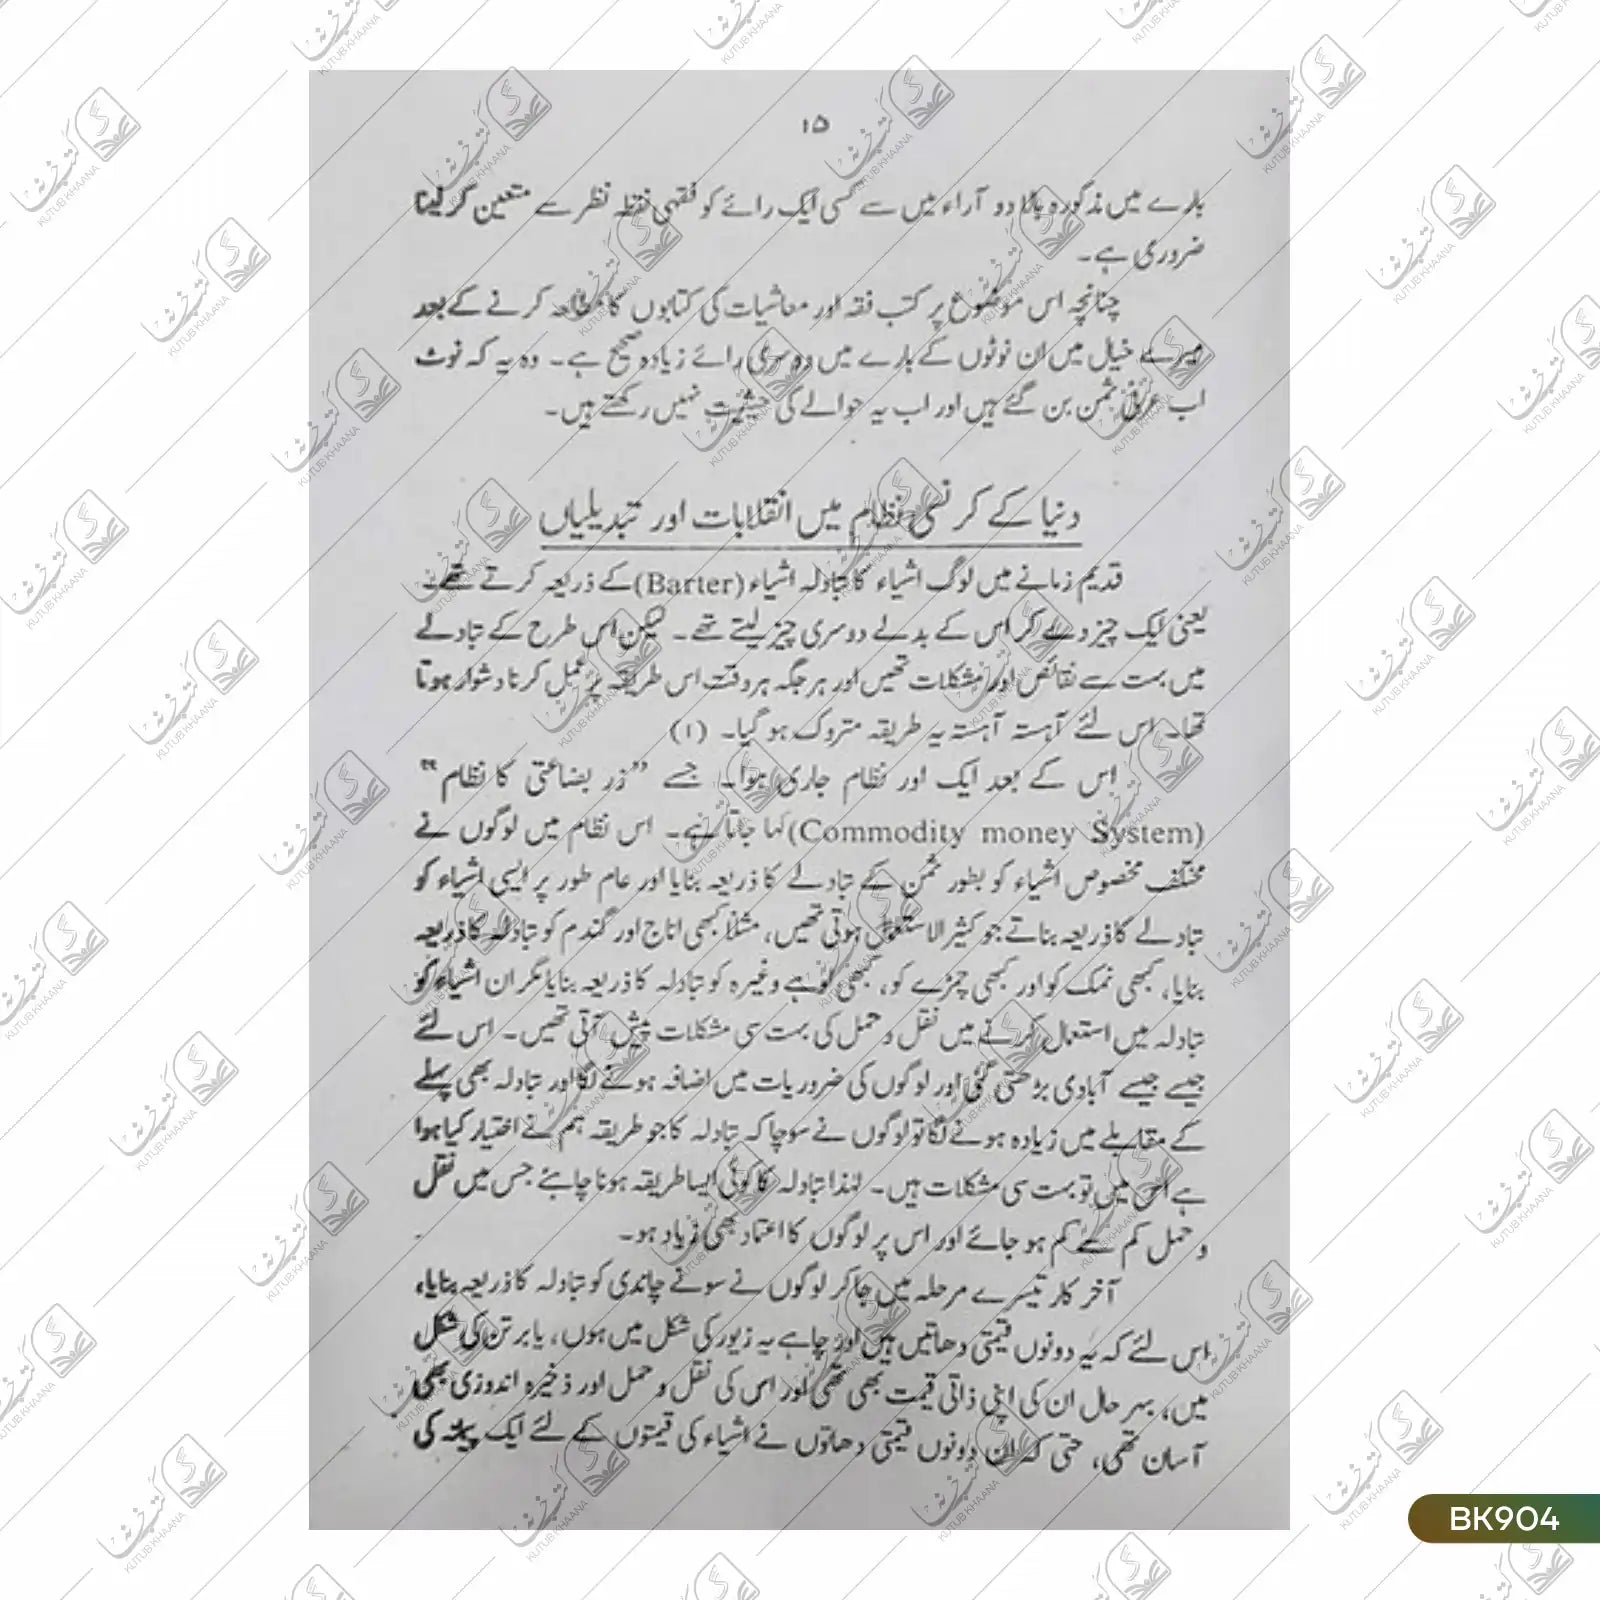 ۱۵
بارے میں مذکورہ بالا دو آراء میں سے کسی ایک رائے کو فقہی نقطہ نظر سے متعین کر لینا
ضروری ہے۔
چنانچہ اس موضوع پر کتب فقہ اور معاشیات کی کتابوں کا مطالعہ کرنے کے بعد
میرے خیال میں ان نوٹوں کے بارے میں دوسری رائے زیادہ صحیح ہے۔ وہ یہ کہ نوٹ
اب عرفی ثمن بن گئے ہیں اور اب یہ حوالے کی حیثیت نہیں رکھتے ہیں۔
دنیا کے کرنسی نظام میں انقلابات اور تبدیلیاں
قدیم زمانے میں لوگ اشیاء کا تبادلہ اشیاء (Barter) کے ذریعہ کرتے تھے۔
یعنی ایک چیز دے کر اس کے بدلے دوسری چیز لیتے تھے۔ لیکن اس طرح کے تبادلے
میں بہت سے نقائص اور مشکلات تھیں اور ہر جگہ ہر وقت اس طریقہ پر عمل کرنا دشوار ہوتا
تھا۔ اس لئے آہستہ آہستہ یہ طریقہ متروک ہو گیا۔ (۱)
اس کے بعد ایک اور نظام جاری ہوا۔ جسے ”زر بضاعتی کا نظام“
(Commodity money System) کہا جاتا ہے۔ اس نظام میں لوگوں نے
مختلف مخصوص اشیاء کو بطور ثمن کے تبادلے کا ذریعہ بنایا اور عام طور پر ایسی اشیاء کو
تبادلے کا ذریعہ بناتے جو کثیر الاستعمال ہوتی تھیں، مثلاً کبھی اناج اور گندم کو تبادلہ کا ذریعہ
بنایا، کبھی نمک کو اور کبھی چمڑے کو، کبھی لوہے وغیرہ کو تبادلہ کا ذریعہ بنایا مگر ان اشیاء کو
تبادلہ میں استعمال کرنے میں نقل و حمل کی بہت سی مشکلات پیش آتی تھیں۔ اس لئے
جیسے جیسے آبادی بڑھتی گئی اور لوگوں کی ضروریات میں اضافہ ہونے لگا اور تبادلہ بھی پہلے
کے مقابلے میں زیادہ ہونے لگا تو لوگوں نے سوچا کہ تبادلہ کا جو طریقہ ہم نے اختیار کیا ہوا
ہے اس میں تو بہت سی مشکلات ہیں۔ لہذا تبادلہ کا کوئی ایسا طریقہ ہونا چاہئے جس میں نقل
و حمل کم سے کم ہو جائے اور اس پر لوگوں کا اعتماد بھی زیاد ہو۔
آخر کار تیسرے مرحلہ میں جا کر لوگوں نے سونے چاندی کو تبادلہ کا ذریعہ بنایا،
اس لئے کہ یہ دونوں قیمتی دھاتیں ہیں اور چاہے یہ زیور کی شکل میں ہوں، یا برتن کی شکل
میں، بہر حال ان کی اپنی ذاتی قیمت بھی تھی اور اس کی نقل و حمل اور ذخیرہ اندوزی بھی
آسان تھی، حتی کہ ان دونوں قیمتی دھاتوں نے اشیاء کی قیمتوں کے لئے ایک پیمانہ کی
BK904
کتب خانہ
KUTUB KHAANA